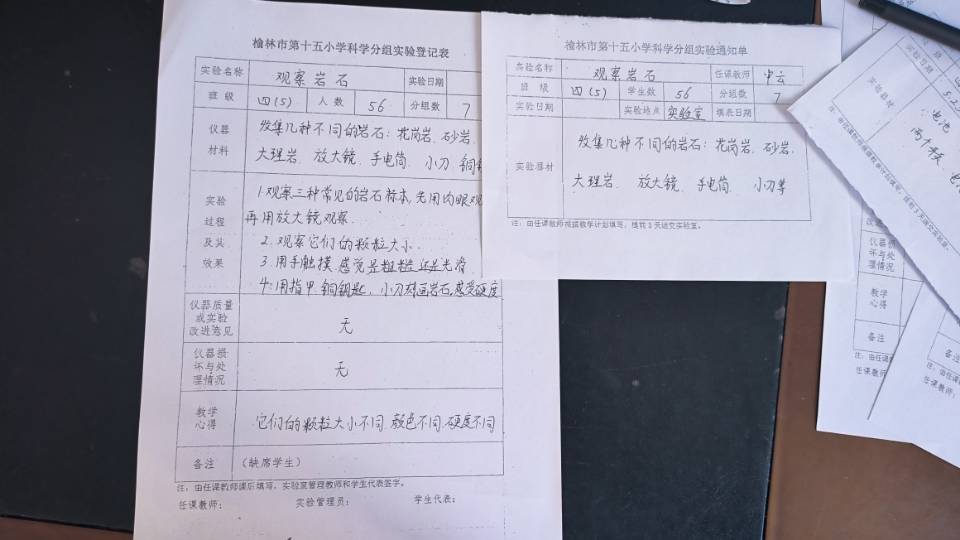 榆林市第十五小学科学分组实验登记表
实验名称 观察岩石 实验日期
班级 四(5) 人数 56 分组数 7
仪器材料
收集几种不同的岩石：花岗岩、砂岩、
大理岩、放大镜、手电筒、小刀、铜
实验过程及其效果
1.观察三种常见的岩石标本,先用肉眼观
再用放大镜观察.
2.观察它们的颗粒大小.
3.用手触摸.感觉是粗糙还是光滑
4.用指甲.铜钥匙、小刀刻画岩石,感受硬度
仪器质量或实验改进意见 无
仪器损坏与处理情况 无
教学心得 它们的颗粒大小不同.颜色不同.硬度不同
备注 (缺席学生)
注：由任课教师课后填写，实验室管理教师和学生代表签字。
任课教师： 实验管理员： 学生代表：
榆林市第十五小学科学分组实验通知单
实验名称 观察岩石 任课教师
班级 四(5) 学生数 56 分组数 7
实验日期 实验地点 实验室 填表日期
实验器材
收集几种不同的岩石：花岗岩、砂岩、
大理岩、放大镜、手电筒、小刀等
注：由任课教师按教学计划填写，提前3天送交实验室。
实验器材
电池
仪器损坏与处理情况
教学心得
备注
任课教师：
备注
任课教师：